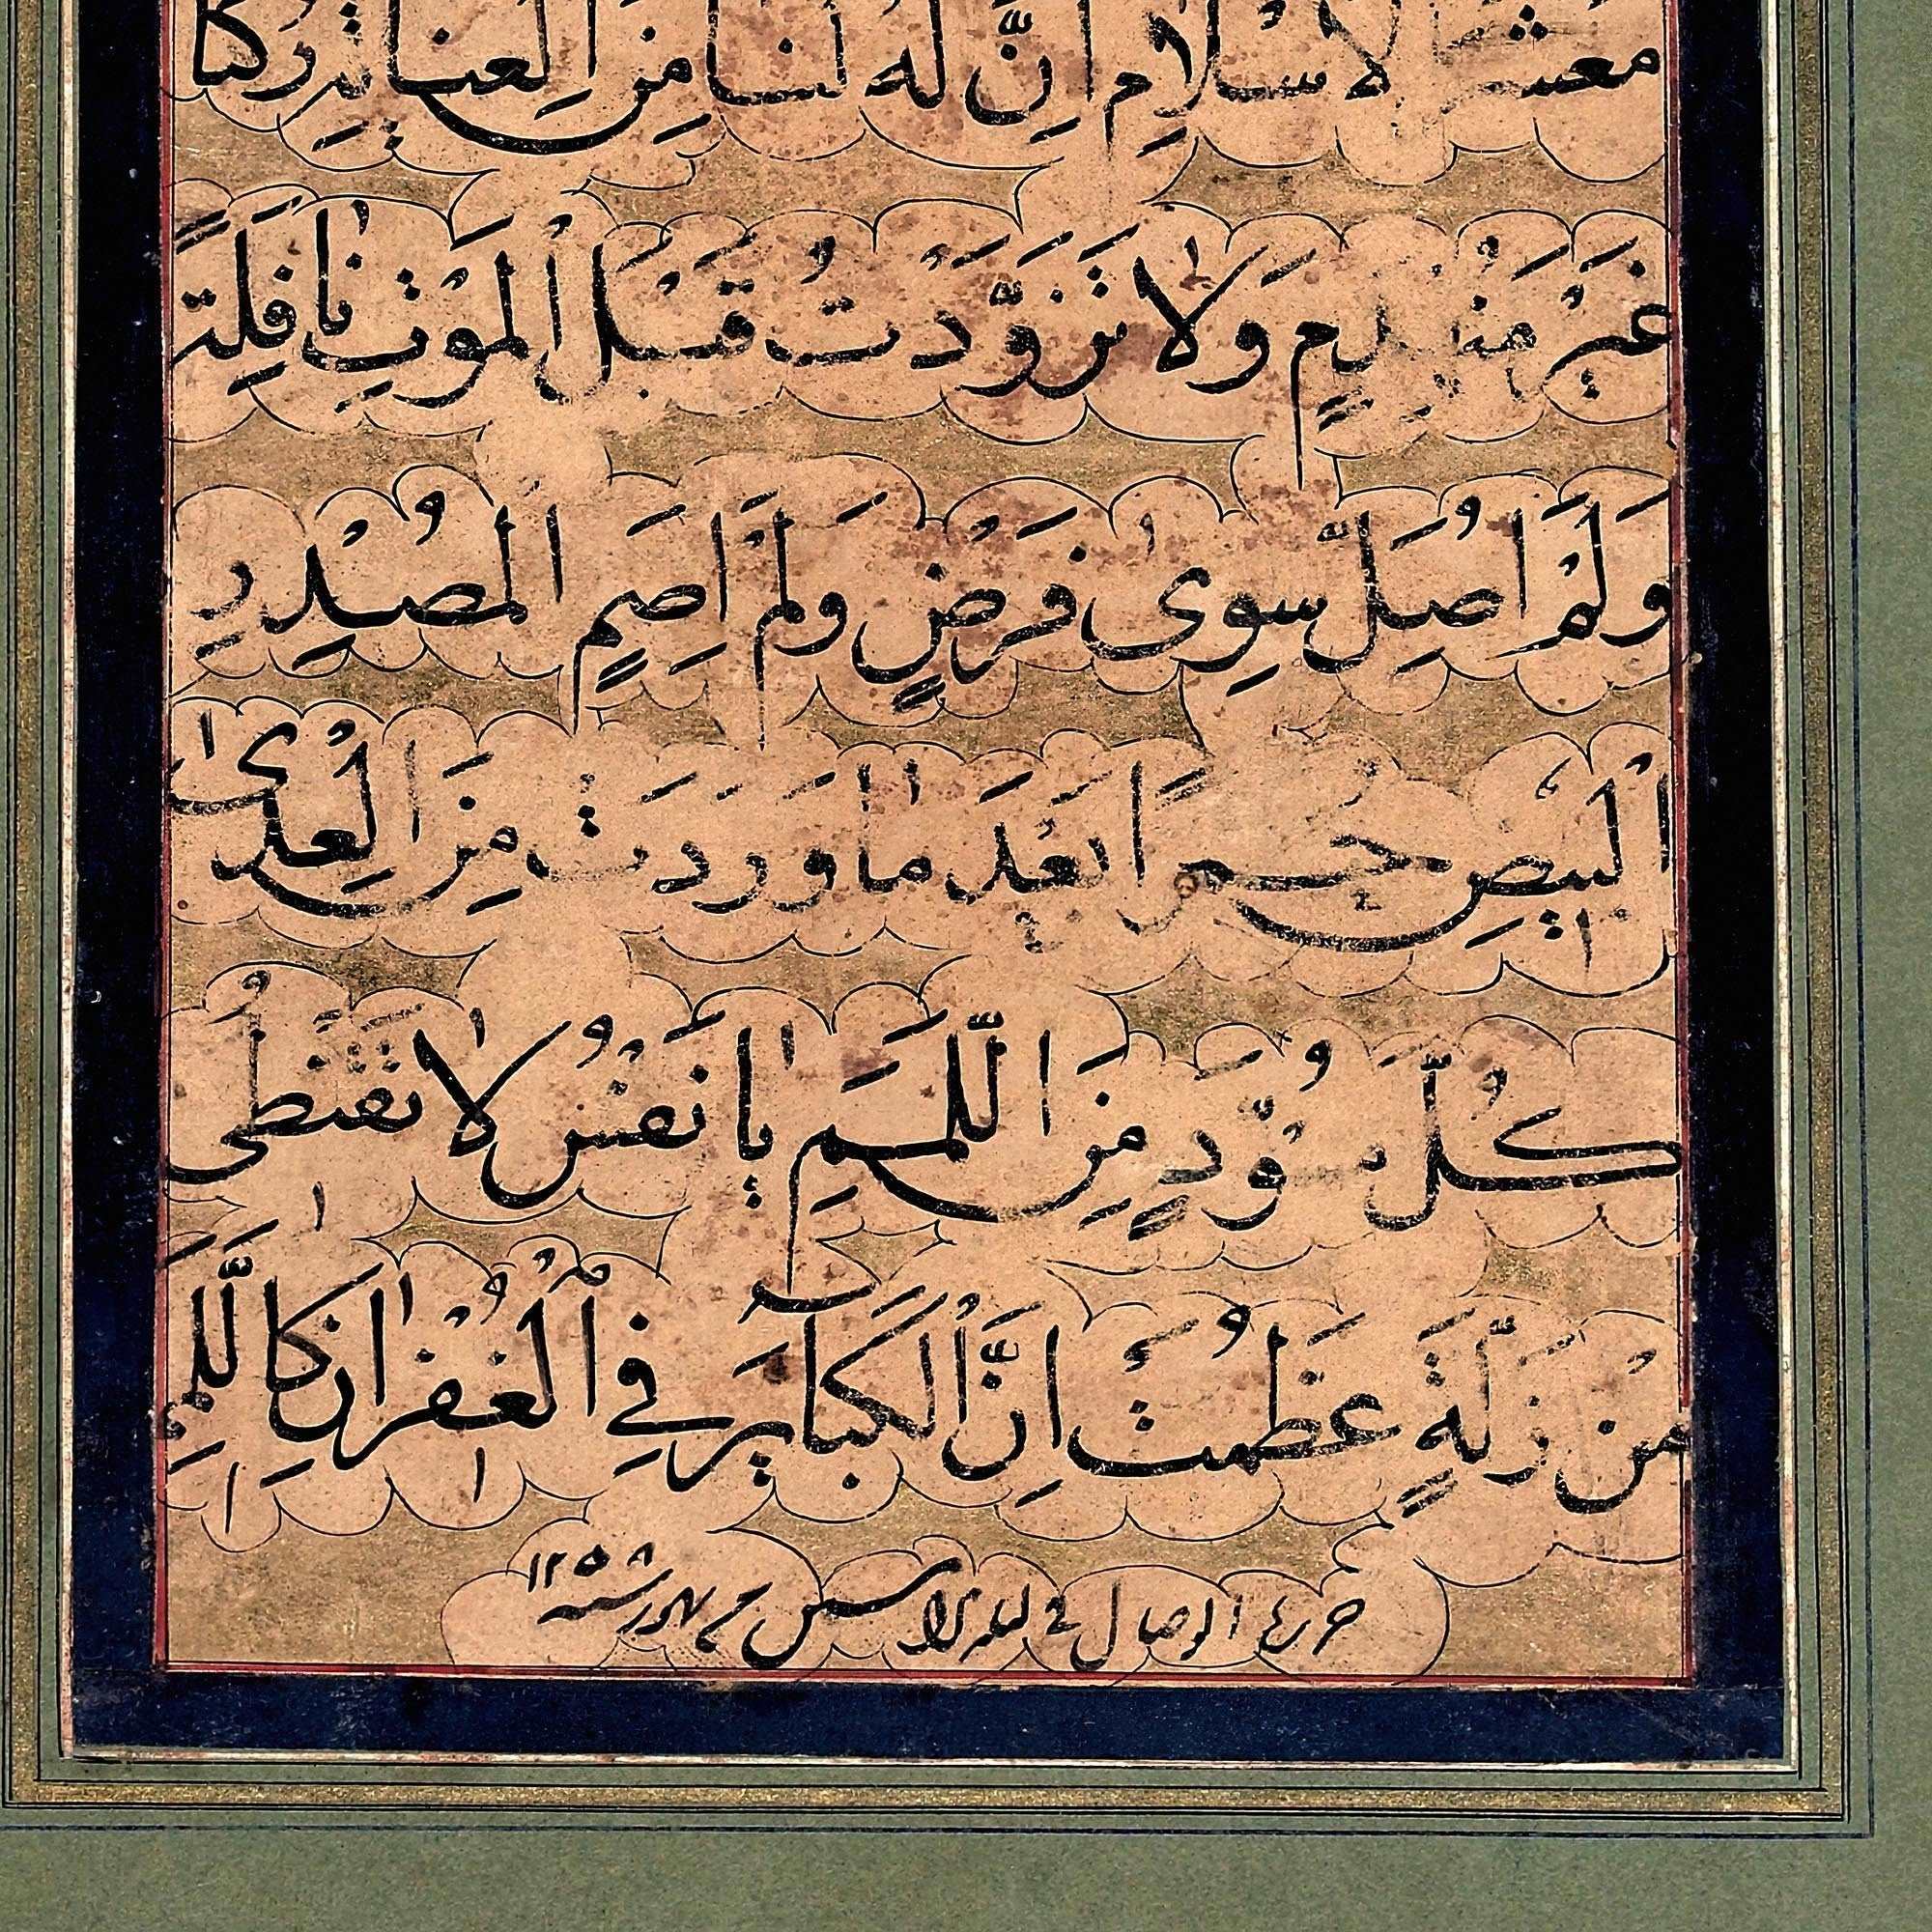 مَعْشَرَ الْاِسْلَامِ اِنَّ لَهُ لَنَا مِنَ الْعِنَايَةِ رُكْنًا
غَيْرَ مُنْهَدِمٍ وَلَا تَزَوَّدْتُ قَبْلَ الْمَوْتِ نَافِلَةً
وَلَمْ اُصَلِّ سِوٰى فَرْضٍ وَلَمْ اَصُمِ الْمُصْدِرِ
الْبِيْضِ حُمْرًا بَعْدَ مَا وَرَدَتْ مِنَ الْعِدٰى
كُلَّ مُسْوَدٍّ مِنَ اللِّمَمِ يَا نَفْسُ لَا تَقْنَطِىْ
مِنْ زَلَّةٍ عَظُمَتْ اِنَّ الْكَبَايِرَ فِى الْغُفْرَانِ كَاللَّمَمِ
حرره الوصال فى سنه ١٢٥٨